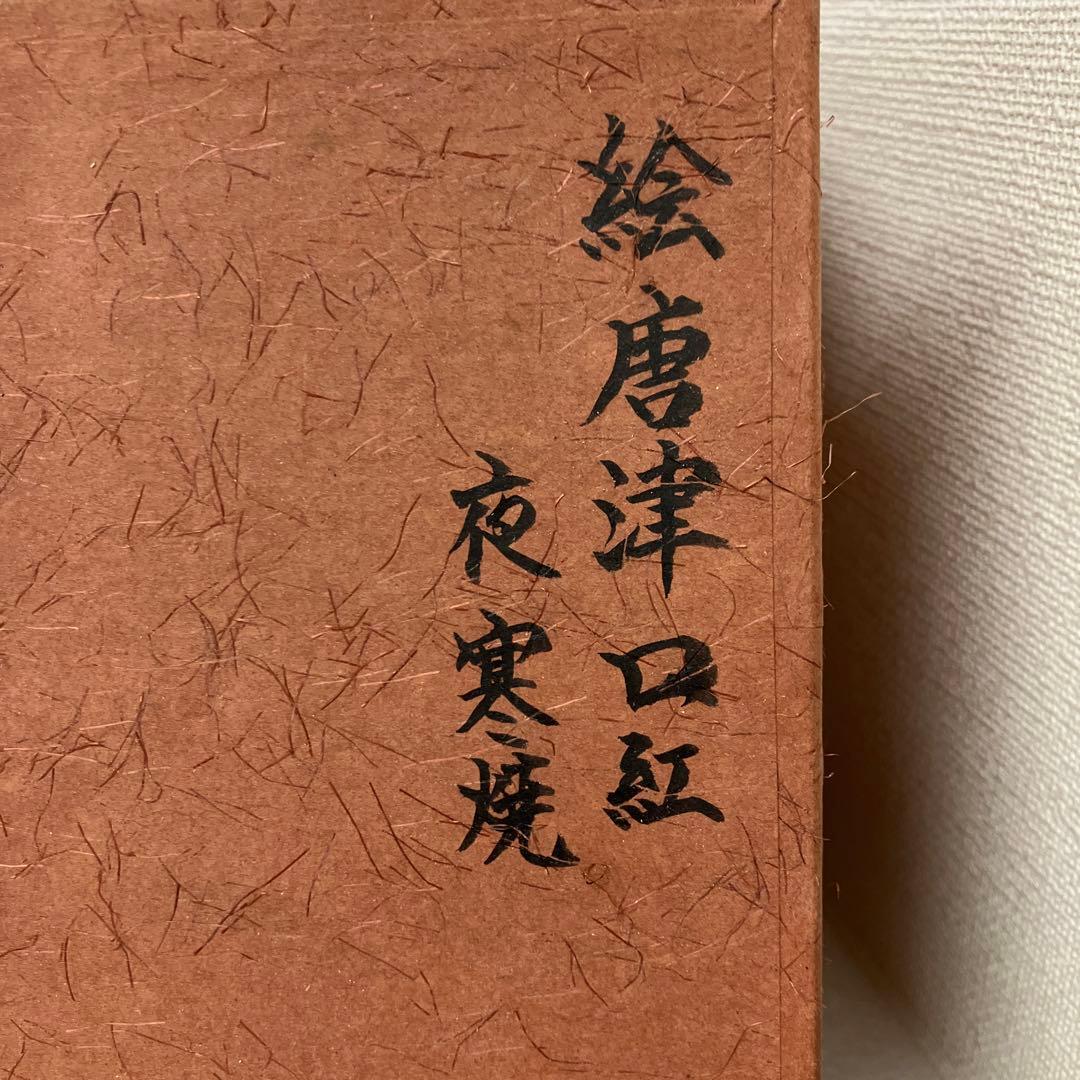 絵唐津口紅
夜寒焼